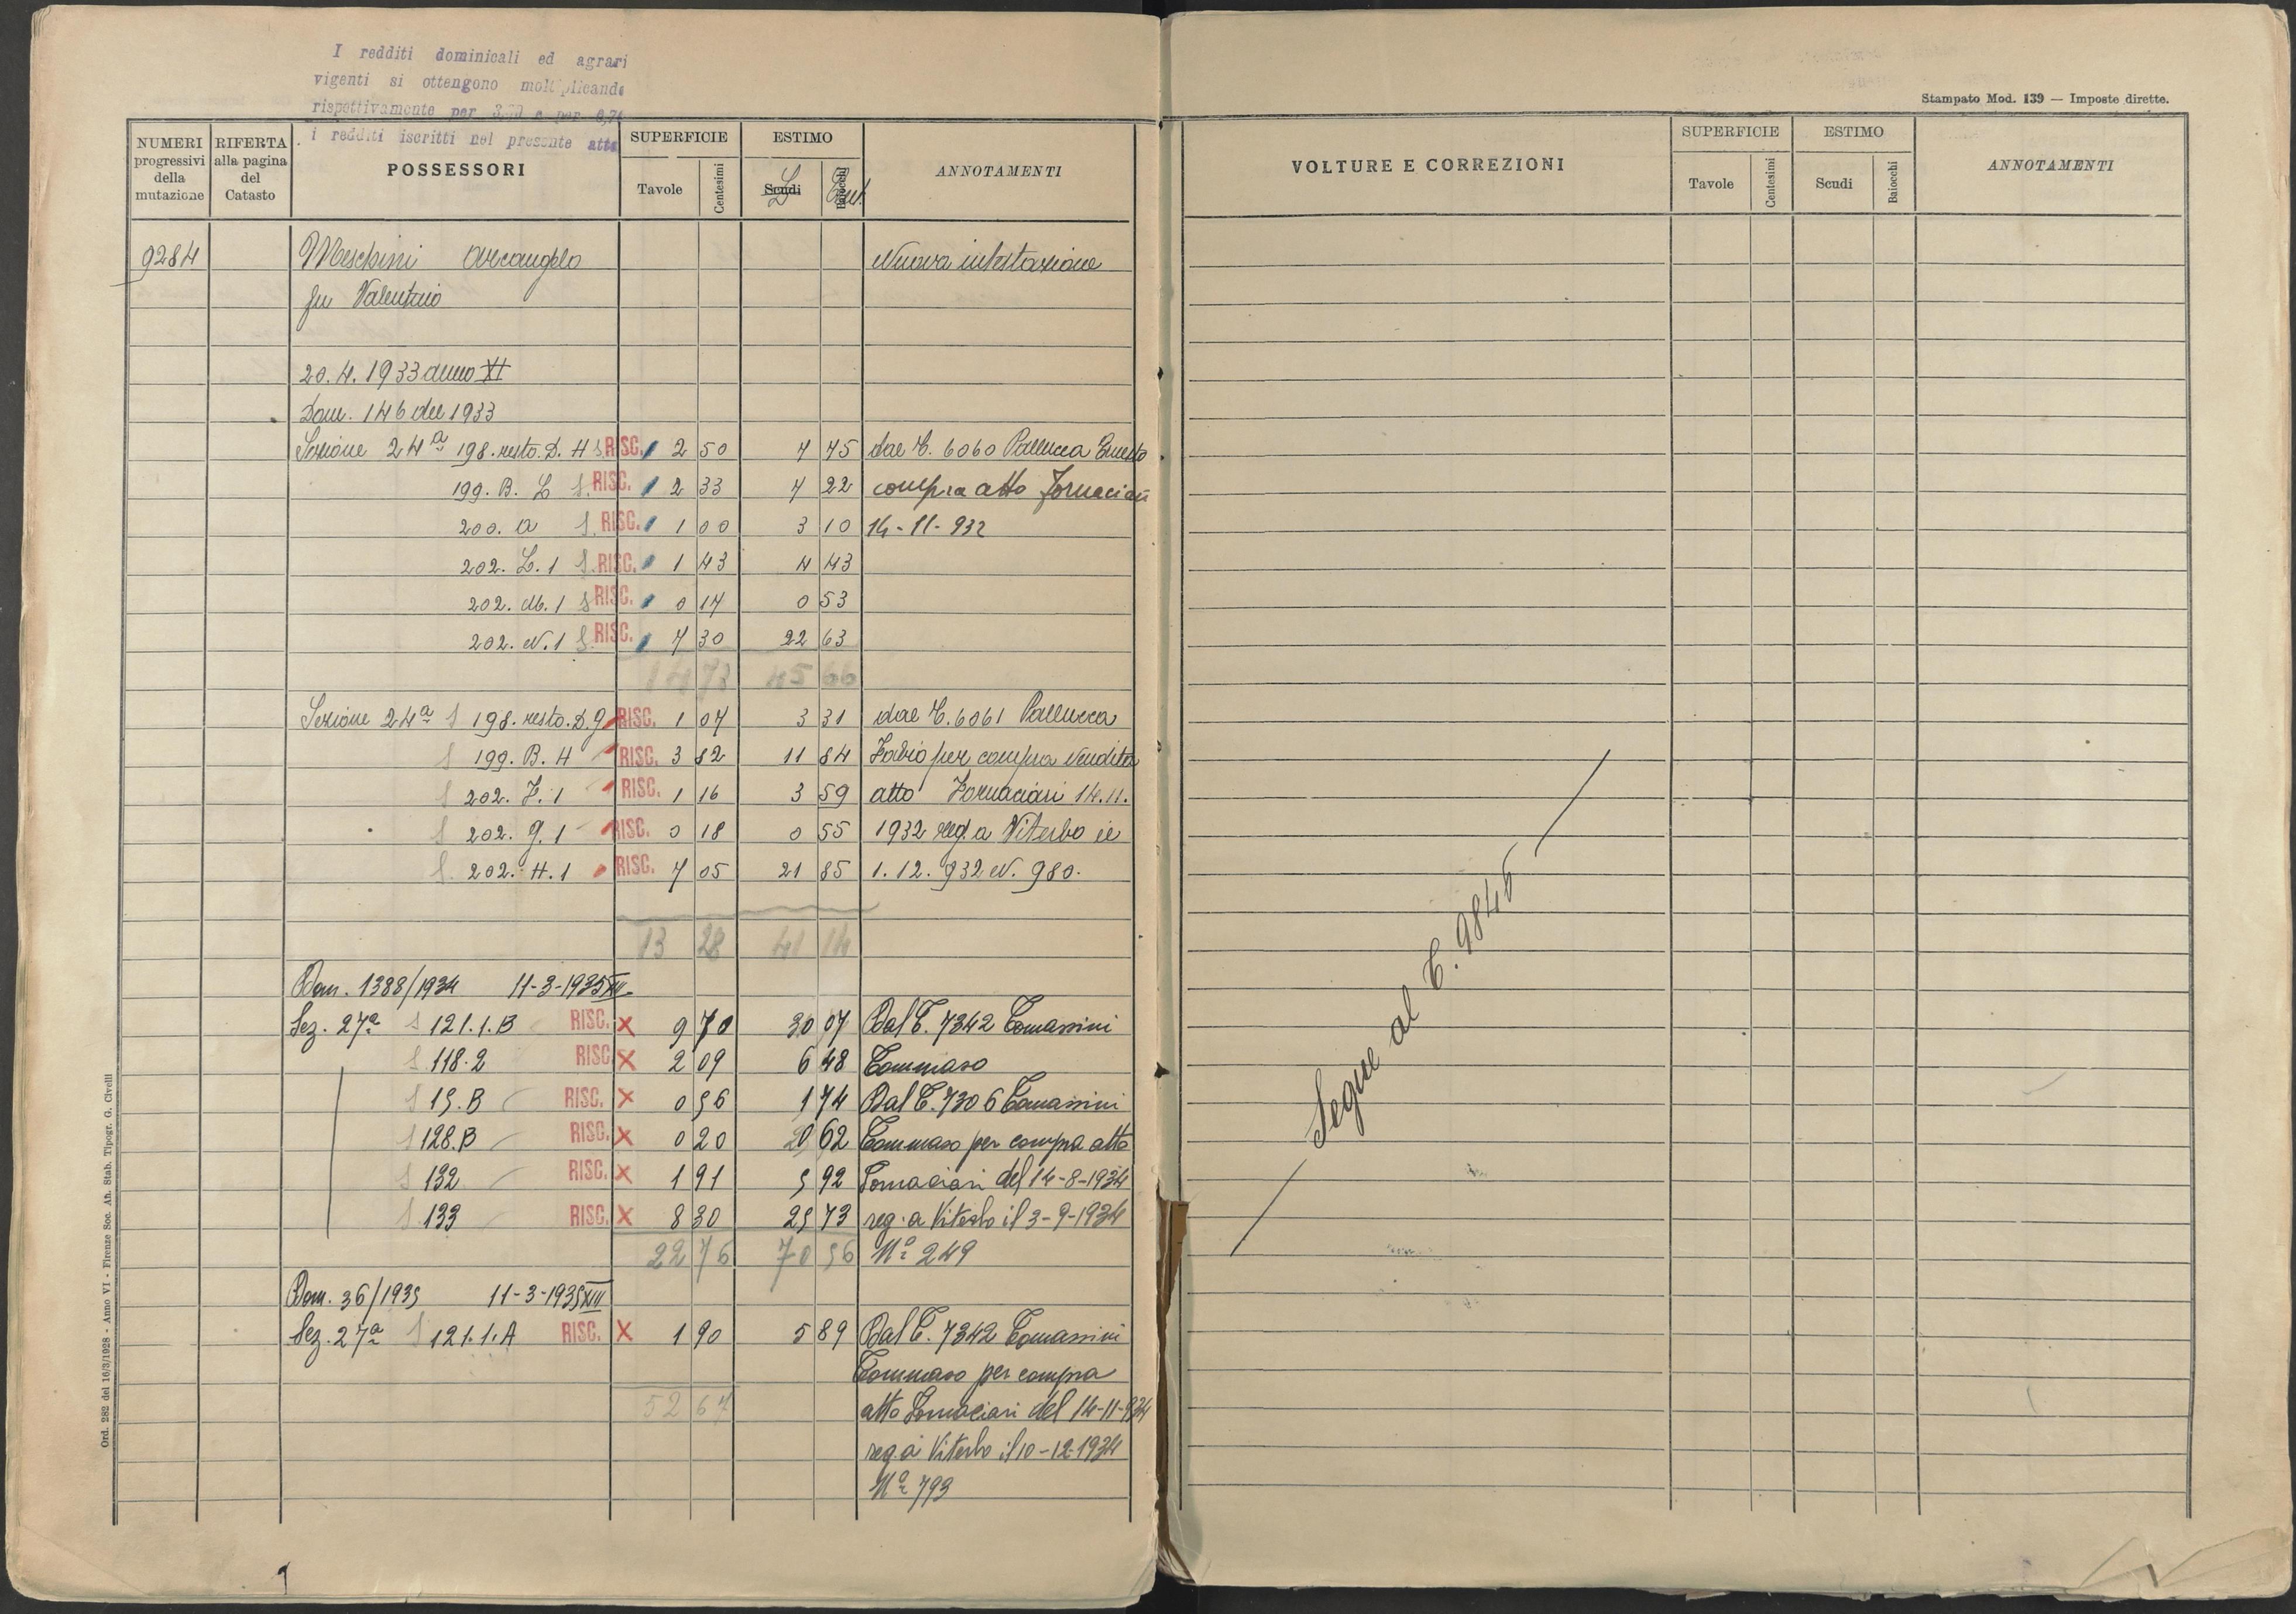 I redditi dominicali ed agrari
vigenti si ottengono moltiplicando
rispettivamente per e per
i redditi iscritti nel presente atto
Stampato Mod. 139 — Imposte dirette.
NUMERI progressivi della mutazione
RIFERTA alla pagina del Catasto
POSSESSORI
SUPERFICIE
Tavole
Centesimi
ESTIMO
Scudi
L
Baiocchi
Cent.
ANNOTAMENTI
VOLTURE E CORREZIONI
SUPERFICIE
Tavole
Centesimi
ESTIMO
Scudi
Baiocchi
ANNOTAMENTI
9284 Meschini Arcangelo Nuova intestazione
fu Valentino
20.4.1933 anno XI
Dom. 146 del 1933
Sezione 24ª 198. resto. D. H S. RISC. 2 50 7 75 dal C. 6060 Pallucca Ernesto
199. B. L S. RISC. 2 33 7 22 compra atto Fornaciari
200. a S. RISC. 1 00 3 10 14-11-932
202. L. 1 S. RISC. 1 43 4 43
202. M. 1 S RISC. 0 17 0 53
202. N. 1 S. RISC. 7 30 22 63
14 73 45 66
Sezione 24ª S 198. resto. D. g RISC. 1 07 3 31 dal C. 6061 Pallucca
S 199. B. H RISC. 3 82 11 84 Fabio per compra vendita
S 202. F. 1 RISC. 1 16 3 59 atto Fornaciari 14.11.
S 202. g. 1 RISC. 0 18 0 55 1932 reg. a Viterbo il
S. 202. H. 1 RISC. 7 05 21 85 1.12.932 N. 980.
13 28 41 14
Dom. 1388/1934 11-3-1935 XIII
Sez. 27ª S 121.1.B RISC. X 9 70 30 07 Dal C. 7342 Tomassini
S 118.2 RISC. X 2 09 6 48 Tommaso
S 15.B RISC. X 0 56 1 74 Dal C. 7306 Tomassini
S 128.B RISC. X 0 20 0 62 Tommaso per compra atto
S 132 RISC. X 1 91 5 92 Fornaciari del 14-8-1934
S 133 RISC. X 8 30 25 73 reg. a Viterbo il 3-9-1934
22 76 70 56 Nº 249
Dom. 36/1935 11-3-1935 XIII
Sez. 27ª S 121.1.A RISC. X 1 90 5 89 Dal C. 7342 Tomassini
Tommaso per compra
52 67 atto Fornaciari del 14-11-934
reg. a Viterbo il 10-12-1934
Nº 793
Segue al C. 9846
Ord. 282 del 16/3/1928 - Anno VI - Firenze Soc. An. Stab. Tipogr. G. Civelli